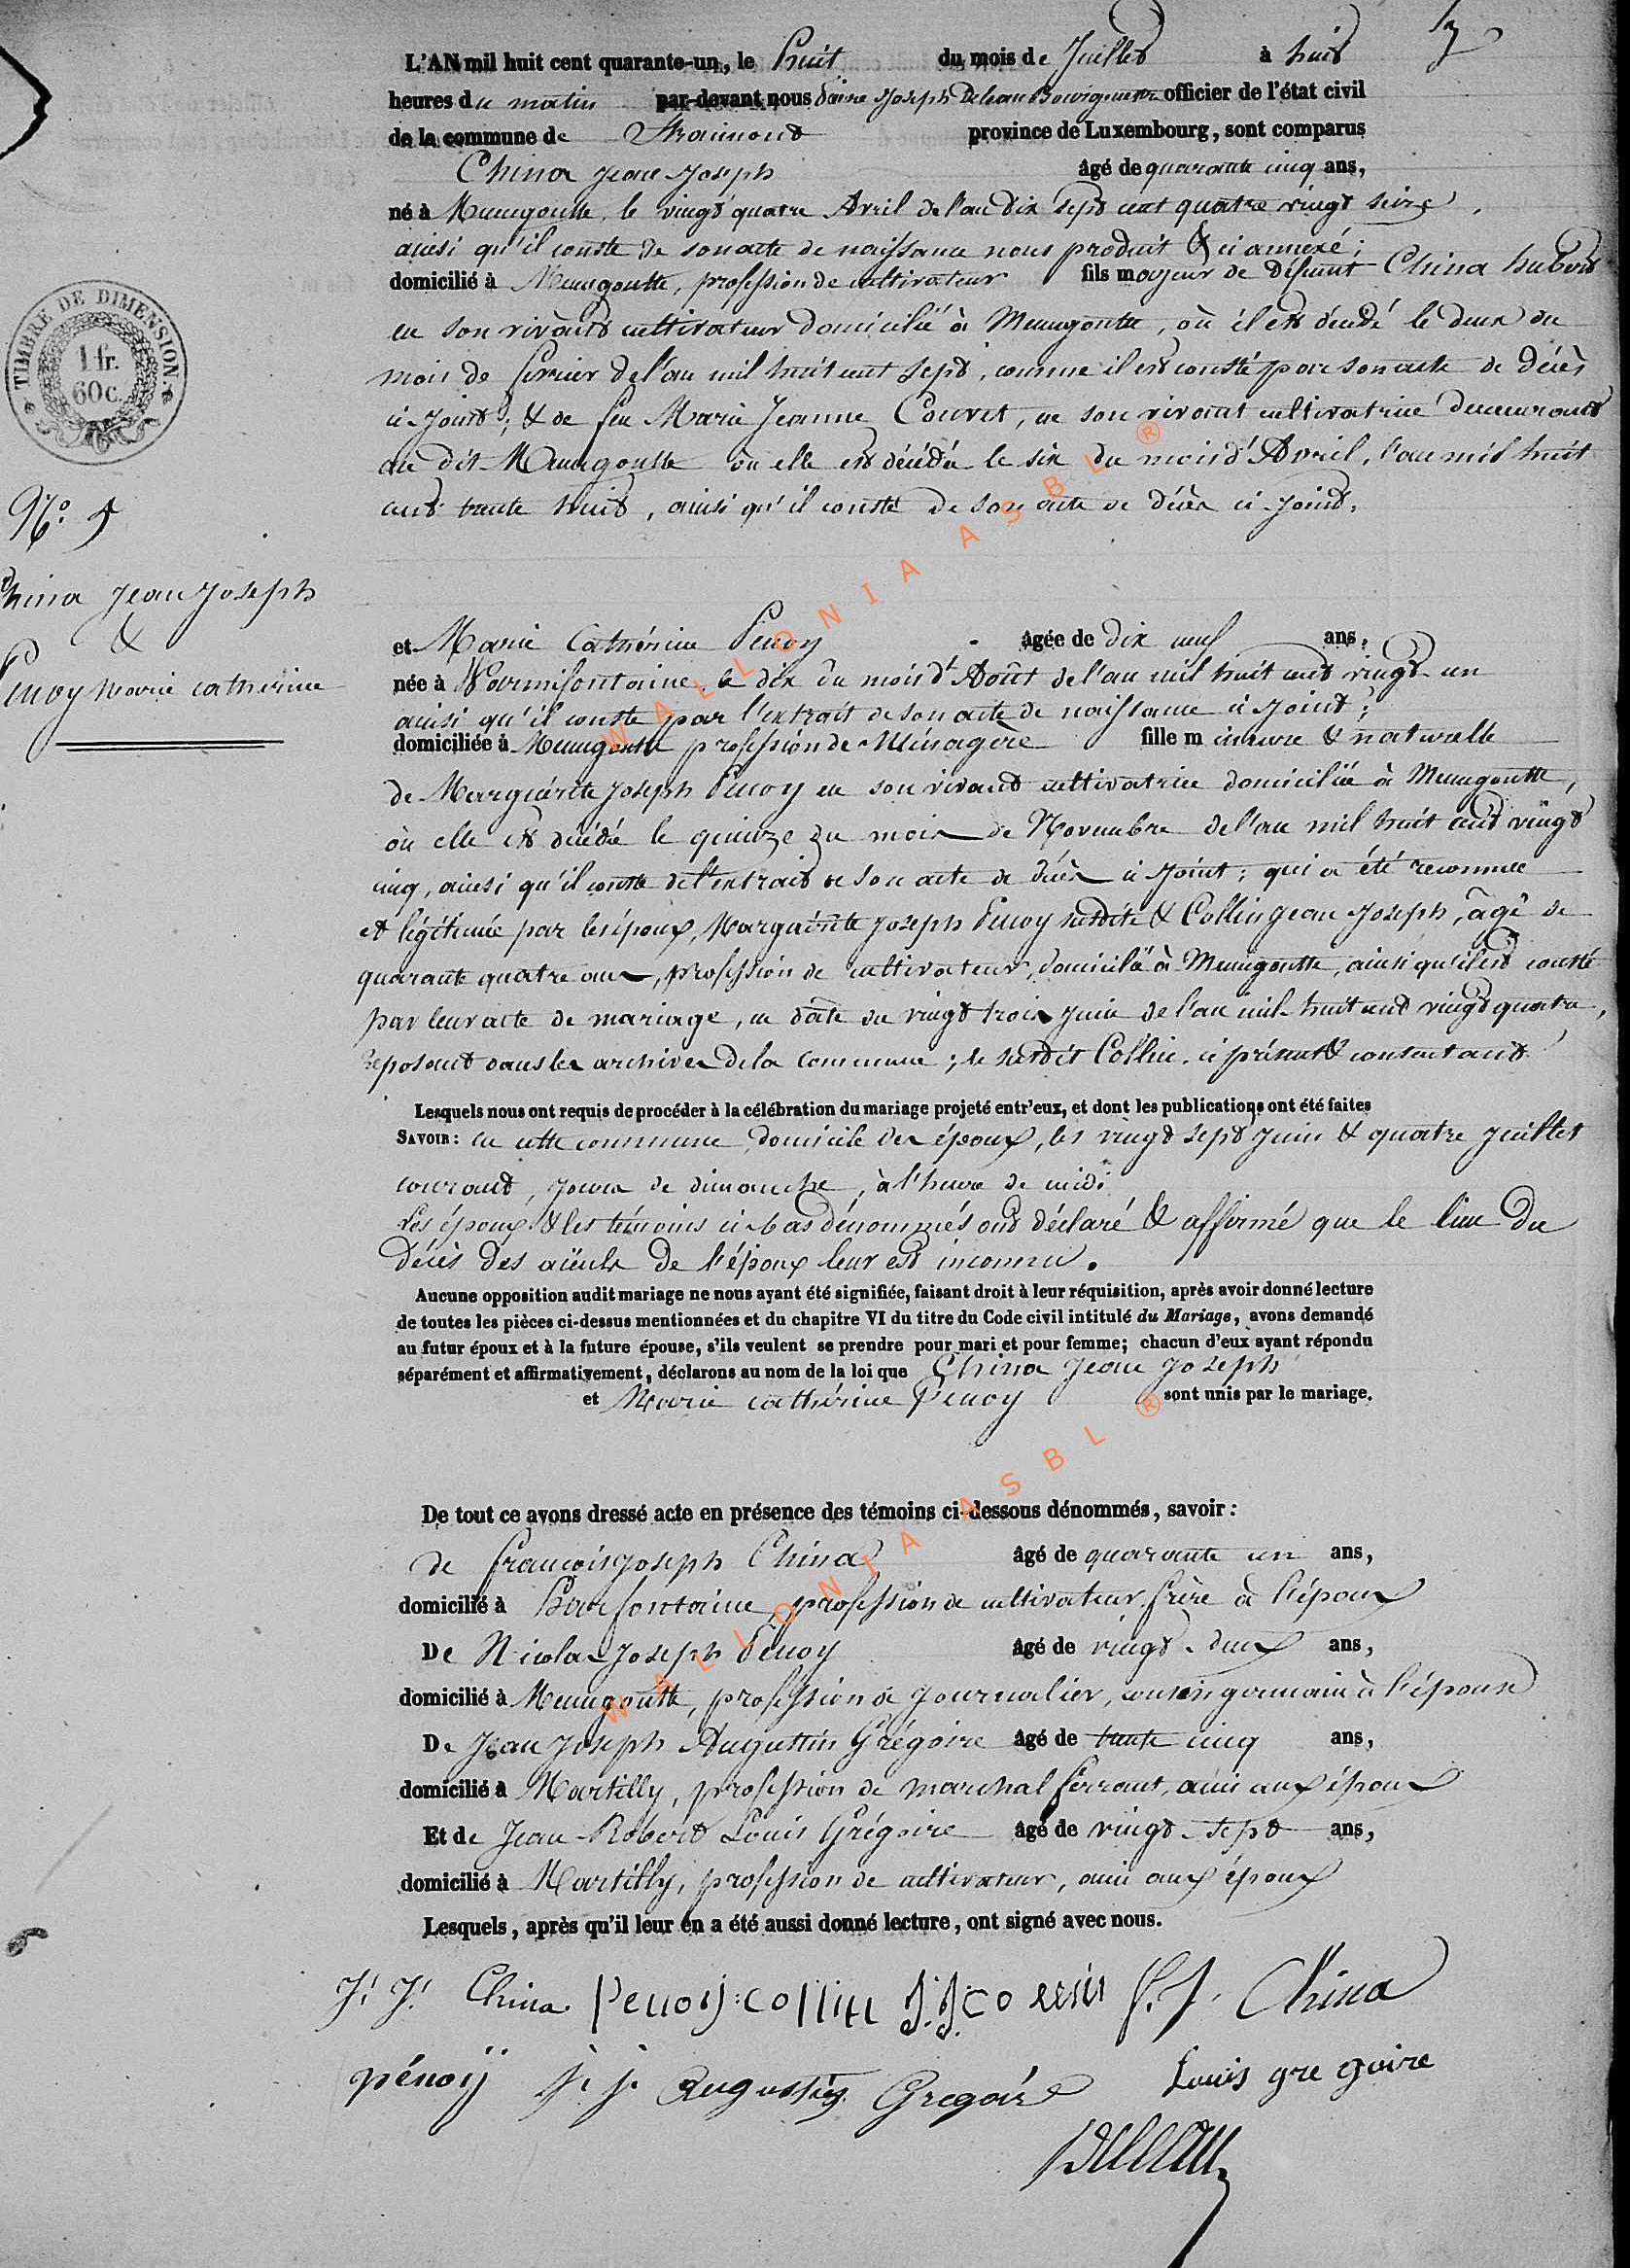 L'AN mil huit cent quarante-un, le huit du mois de Juillet à huit
heures du matin par-devant nous Joseph Deleau Bourgmestre officier de l'état civil
de la commune de Straimont province de Luxembourg, sont comparus
China Jean Joseph âgé de quarante cinq ans,
né à Menugoutte, le vingt quatre Avril de l'an dix sept cent quatre vingt seize,
ainsi qu'il conste de son acte de naissance nous produit & ci annexé;
domicilié à Menugoutte, profession de cultivateur fils majeur de défunt China hubert
en son vivant cultivateur domicilié à Menugoutte, où il est décédé le deux du
mois de février de l'an mil huit cent sept, comme il est consté par son acte de décès
ci-joint; & de feu Marie Jeanne Couvet, en son vivant cultivatrice demeurant
au dit Menugoutte où elle est décédée le six du mois d'Avril, l'an mil huit
cent trente huit, ainsi qu'il conste de son acte de décès ci-joint,
TIMBRE DE DIMENSION.
1 fr.
60c.
N°. 5
China Jean Joseph
&
Penoy Marie catherine
et Marie Cathérine Penoy âgée de dix neuf ans,
née à Warmifontaine, le dix du mois d'Août de l'an mil huit cent vingt-un
ainsi qu'il conste par l'extrait de son acte de naissance ci-joint;
domiciliée à Menugoutte profession de Ménagère fille mineure & naturelle
de Marguérite Joseph Penoy en son vivant cultivatrice domiciliée à Menugoutte,
où elle est décédée le quinze du mois de Novembre de l'an mil huit cent vingt
cinq, ainsi qu'il conste de l'extrait de son acte de décès ci-joint; qui a été reconnue
et légitimée par les époux, Marguérite Joseph Penoy susdite & Collin Jean Joseph, âgé de
quarante quatre ans, profession de cultivateur, domicilié à Menugoutte, ainsi qu'il est consté
par leur acte de mariage, en date du vingt trois juin de l'an mil-huit cent vingt quatre,
reposant dans les archives de la commune; le susdit Collin, ci présent & consentant
Lesquels nous ont requis de procéder à la célébration du mariage projeté entr'eux, et dont les publications ont été faites
SAVOIR: en cette commune, domicile des époux, les vingt sept Juin & quatre Juillet
courant, jours de dimanche, à l'heure de midi
Les époux & les témoins ci-bas dénommés ont déclaré & affirmé que le lieu du
décès des aïeuls de l'époux leur est inconnu.
Aucune opposition audit mariage ne nous ayant été signifiée, faisant droit à leur réquisition, après avoir donné lecture
de toutes les pièces ci-dessus mentionnées et du chapitre VI du titre du Code civil intitulé du Mariage, avons demandé
au futur époux et à la future épouse, s'ils veulent se prendre pour mari et pour femme; chacun d'eux ayant répondu
séparément et affirmativement, déclarons au nom de la loi que China Jean Joseph
et Marie Cathérine Penoy sont unis par le mariage.
De tout ce avons dressé acte en présence des témoins ci-dessous dénommés, savoir:
de françois joseph China âgé de quarante un ans,
domicilié à Harfontaine, profession de cultivateur, frère à l'époux
De Nicolas Joseph Penoy âgé de vingt-deux ans,
domicilié à Menugoutte, profession de Journalier, cousin germain à l'épouse
De Jean Joseph Augustin Grégoire âgé de trente cinq ans,
domicilié à Martilly, profession de marchal ferrant, ami aux époux
Et de Jean Robert Louis Grégoire âgé de vingt-sept ans,
domicilié à Martilly, profession de cultivateur, ami aux époux
Lesquels, après qu'il leur en a été aussi donné lecture, ont signé avec nous.
J. J. China Penoy:collin J.J. collin f. J. China
pénoÿ j. j. Augustin Gregoire Louis gregoire
Deleau
WALLONIA ASBL ®
WALLONIA ASBL ®